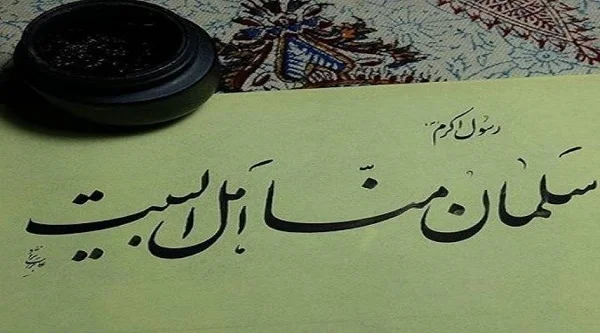 رسول اکرم
سَلمان منّا اَهل البیت